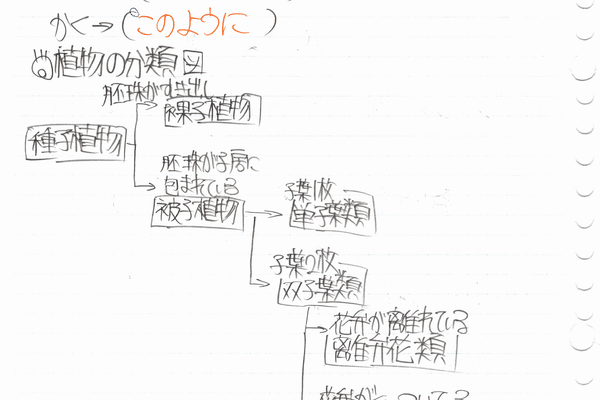 かく→(このように)
植物の分類図
胚珠がむき出し
裸子植物
種子植物
胚珠が子房に
包まれている
被子植物
子葉1枚
単子葉類
子葉2枚
双子葉類
花弁が離れている
離弁花類